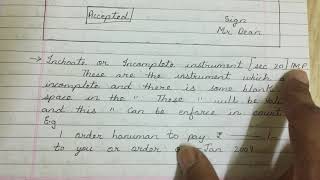 Accepted
Sign
Mr. Dean
→ Inchoate or Incomplete instrument [sec 20] IMP
These are the instrument which a
incomplete and there is some blank
space in the " These " will be val
and this " can be enforce in court
Eg
I order hanuman to pay ₹
to you or order Jan 2004